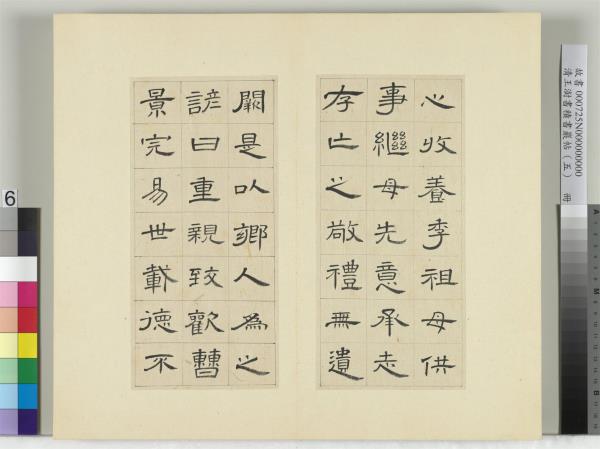 心收養季祖母供
事繼母先意承志
存亡之敬禮無遺
闕是以鄉人為之
諺曰重親致歡曹
景完易世載德不
故書 000725N000000000
清王澍書積書巖帖（五） 冊
6
A
M
B